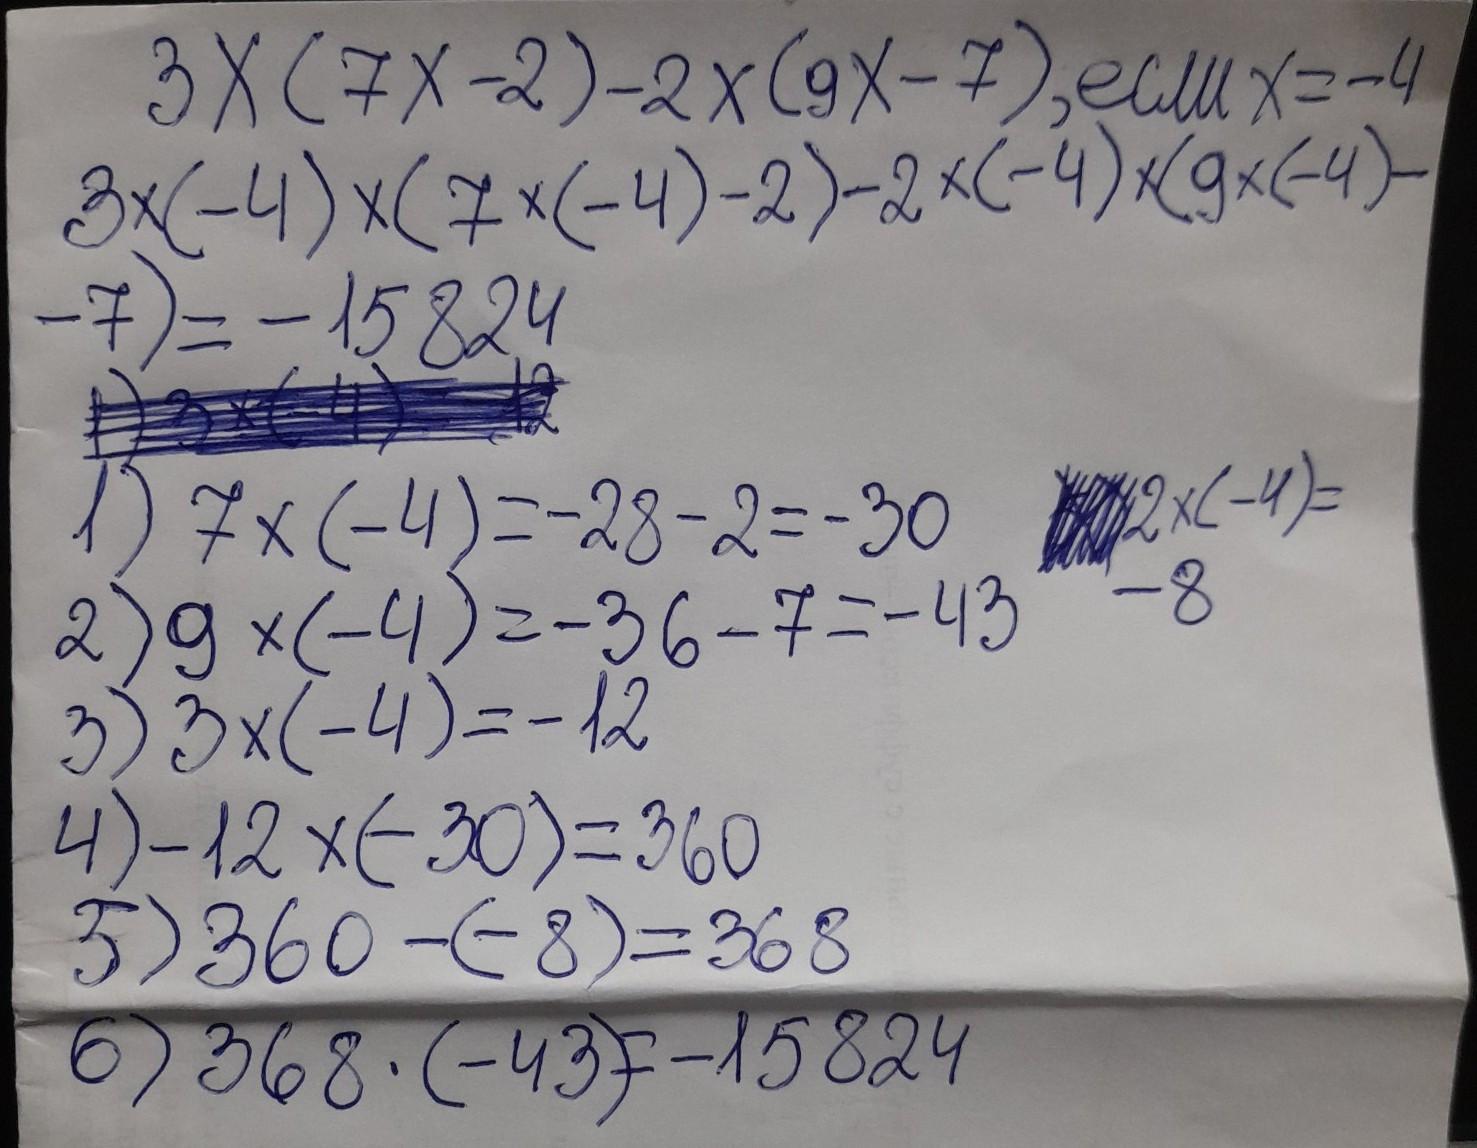 3X(7X-2)-2x(9X-7), если x=-4
3×(-4)×(7×(-4)-2)-2×(-4)×(9×(-4)-
-7)=-15824
1) 7×(-4)=-28-2=-30
2×(-4)=
-8
2) 9×(-4)=-36-7=-43
3) 3×(-4)=-12
4) -12×(-30)=360
5) 360-(-8)=368
6) 368·(-43)=-15824